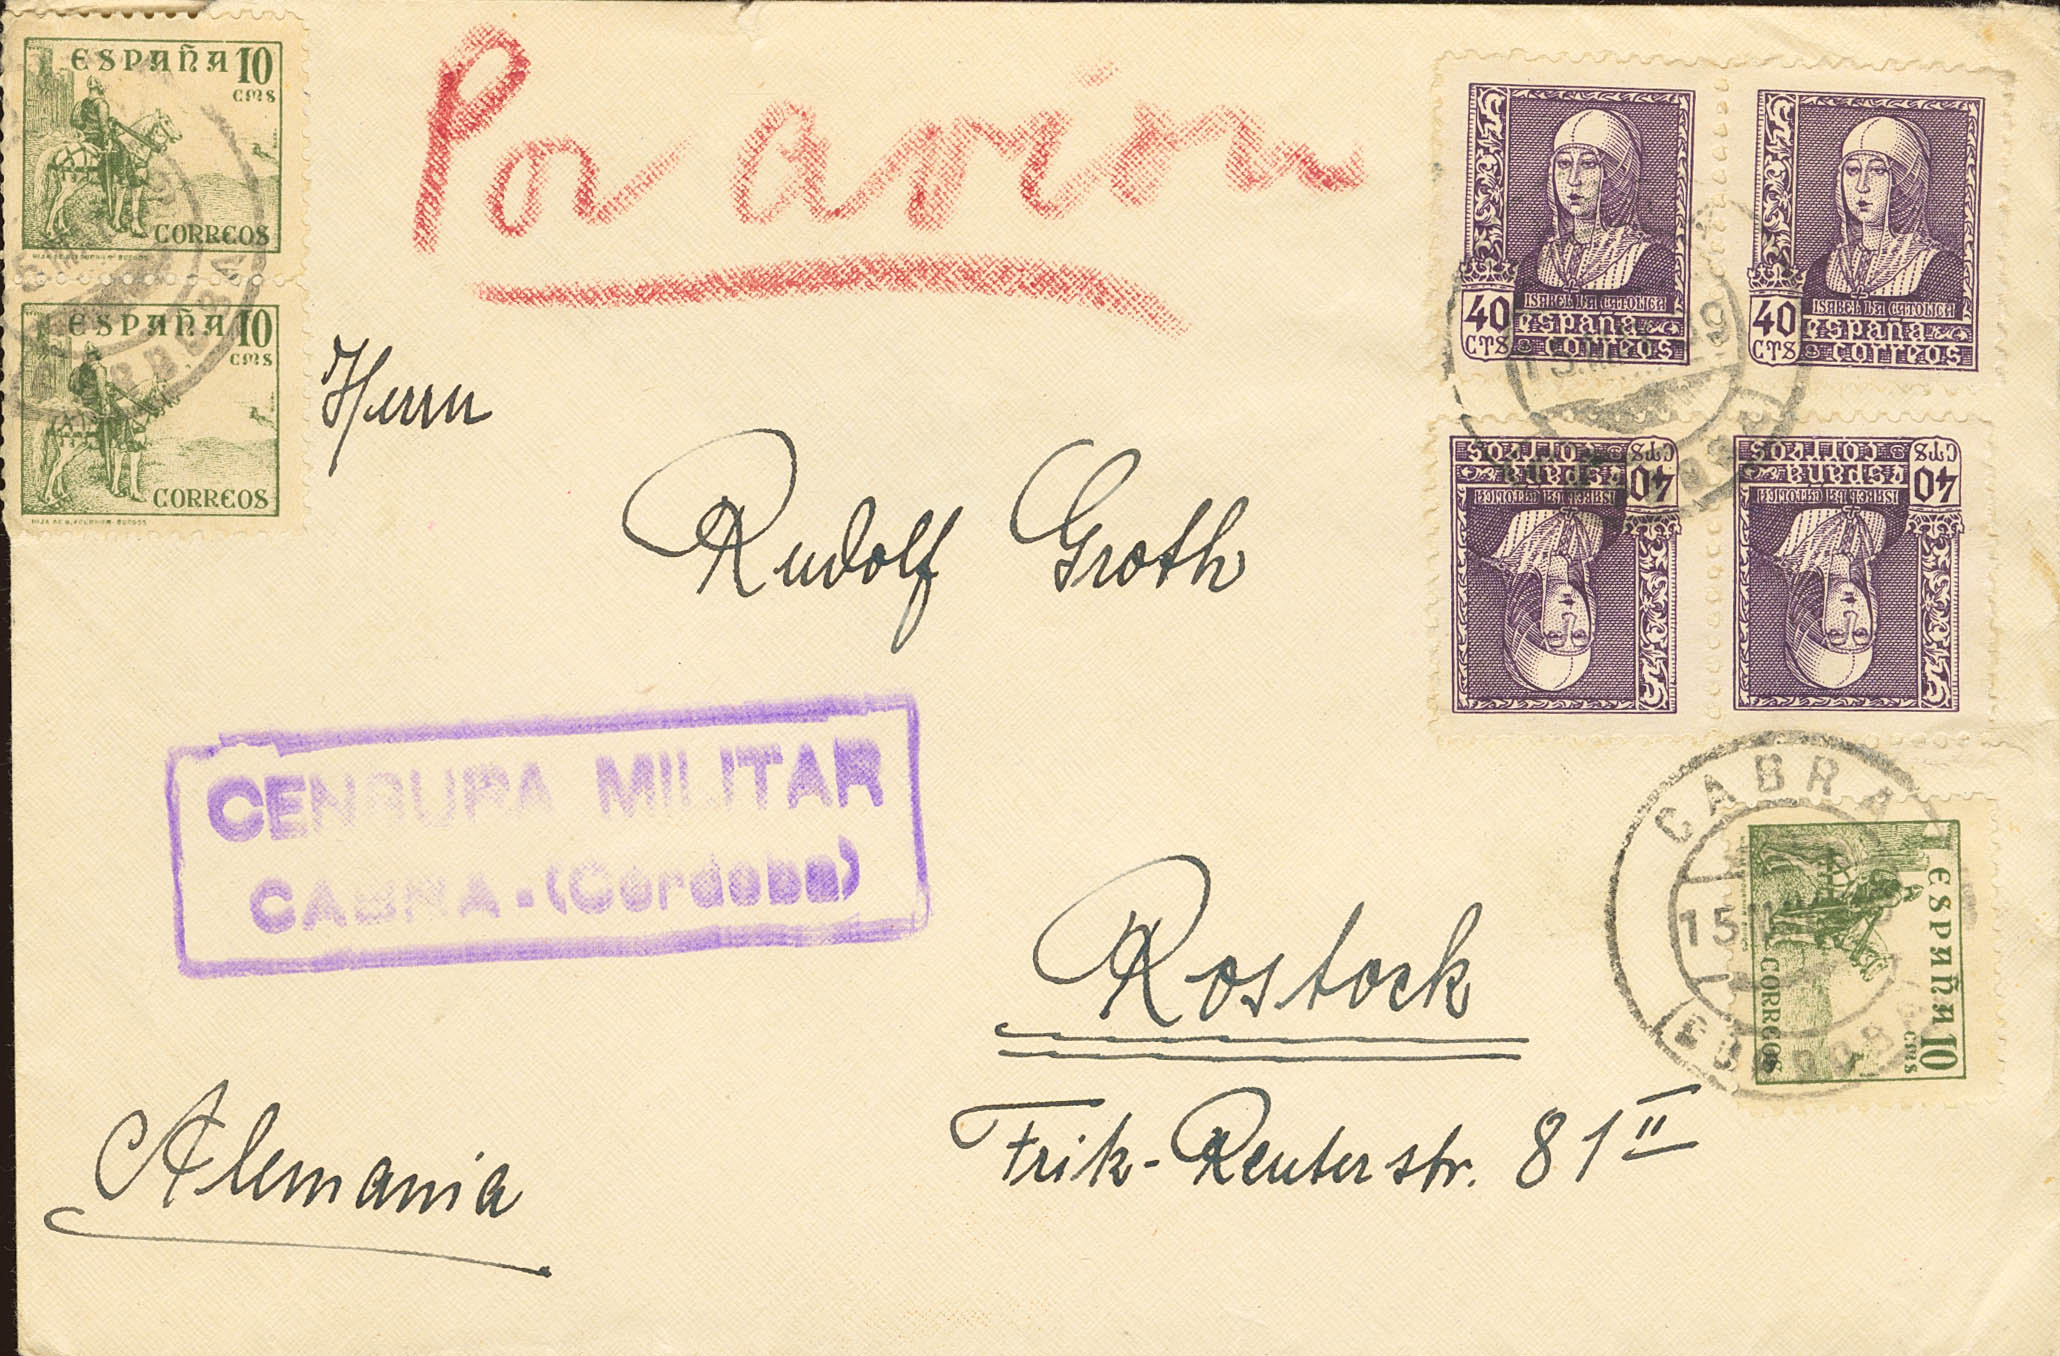 ESPAÑA 10
CMS
CORREOS
ESPAÑA 10
CMS
CORREOS
HIJA DE B. FOURNIER-BURGOS
Por avión
ISABEL LA CATOLICA
40 españa
CTS correos
ISABEL LA CATOLICA
40 españa
CTS correos
ISABEL LA CATOLICA
40 españa
CTS correos
ISABEL LA CATOLICA
40 españa
CTS correos
Herrn
Rudolf Groth
CENSURA MILITAR
CABRA.-(Córdoba)
CABRA
15
CORDOBA
ESPAÑA 10
CMS
CORREOS
Rostock
Frik-Reuterstr. 81 II
Alemania